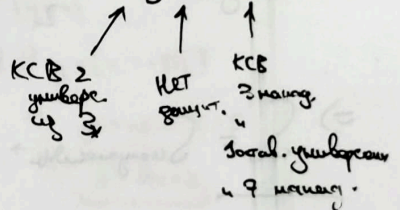 КСВ 2
универс.
из 3х
нет
защит.
КСВ
3 напад.
и
1остав. универсал
и 9 напад.